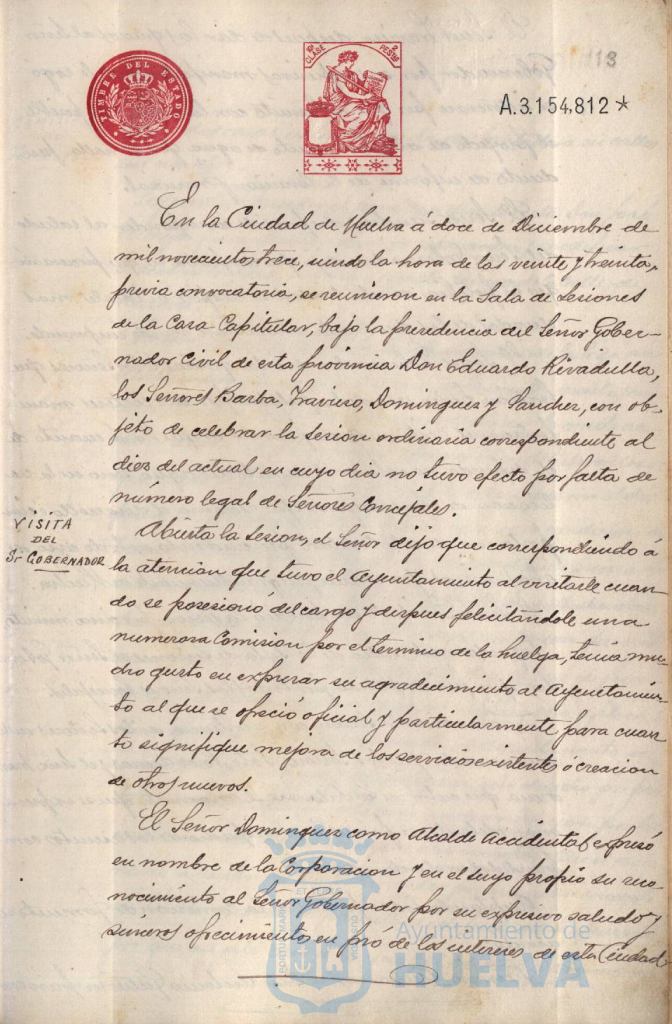 TIMBRE DEL ESTADO
10ª CLASE
2 PESTAS
113
A.3.154,812*
En la Ciudad de Huelva á doce de Diciembre de
mil novecientos trece, siendo la hora de las veinte y treinta,
previa convocatoria, se reunieron en la Sala de Sesiones
de la Casa Capitular, bajo la presidencia del Señor Gober-
nador Civil de esta provincia Don Eduardo Rivadulla,
los Señores Barba, Travieso, Dominguez y Sanchez, con ob-
jeto de celebrar la sesion ordinaria correspondiente al
diez del actual en cuyo dia no tuvo efecto por falta de
número legal de Señores Concejales.
VISITA
DEL
Sr GOBERNADOR
Abierta la sesion, el Señor dijo que correspondiendo á
la atencion que tuvo el Ayuntamiento al visitarle cuan-
do se posesionó del cargo y despues felicitándole una
numerosa Comision por el termino de la huelga, tenia mu-
cho gusto en expresar su agradecimiento al Ayuntamien-
to al que se ofreció oficial y particularmente para cuan-
to signifique mejora de los servicios existentes ó creacion
de otros nuevos.
El Señor Dominguez como Alcalde Accidental expresó
en nombre de la Corporacion y en el suyo propio su reco-
nocimiento al Señor Gobernador por su expresivo saludo y
sinceros ofrecimientos en pró de los intereses de esta Ciudad
Ayuntamiento de
HUELVA